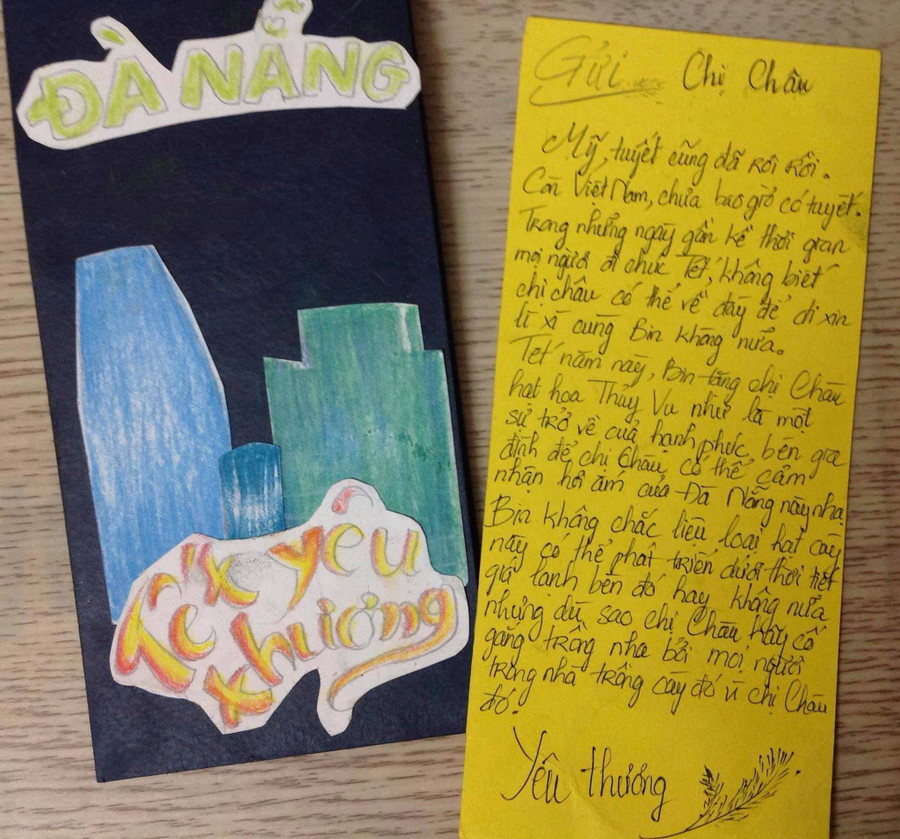 ĐÀ NẴNG
Tết yêu
thương
Gửi Chị Châu
Mỹ, tuyết cũng đã rơi rồi.
Còn Việt Nam, chưa bao giờ có tuyết.
Trong những ngày gần kề thời gian
mọi người đi chúc Tết, không biết
chị châu có thể về đây để đi xin
lì xì cùng Bin không nữa.
Tết năm này, Bin tặng chị Châu
hạt hoa Thủy Vu như là một
sử trở về của hạnh phúc bên gia
định để chị Châu có thể cảm
nhận hơi ấm của Đà Nẵng này nha
Bin không chắc liệu loại hạt cây
này có thể phát triển dưới thời tiết
giá lạnh bên đó hay không nữa
nhưng dù sao chị Châu hãy cố
gắng trồng nha bởi mọi người
trong nhà trồng cây đó vì chị Châu
đó.
Yêu thương